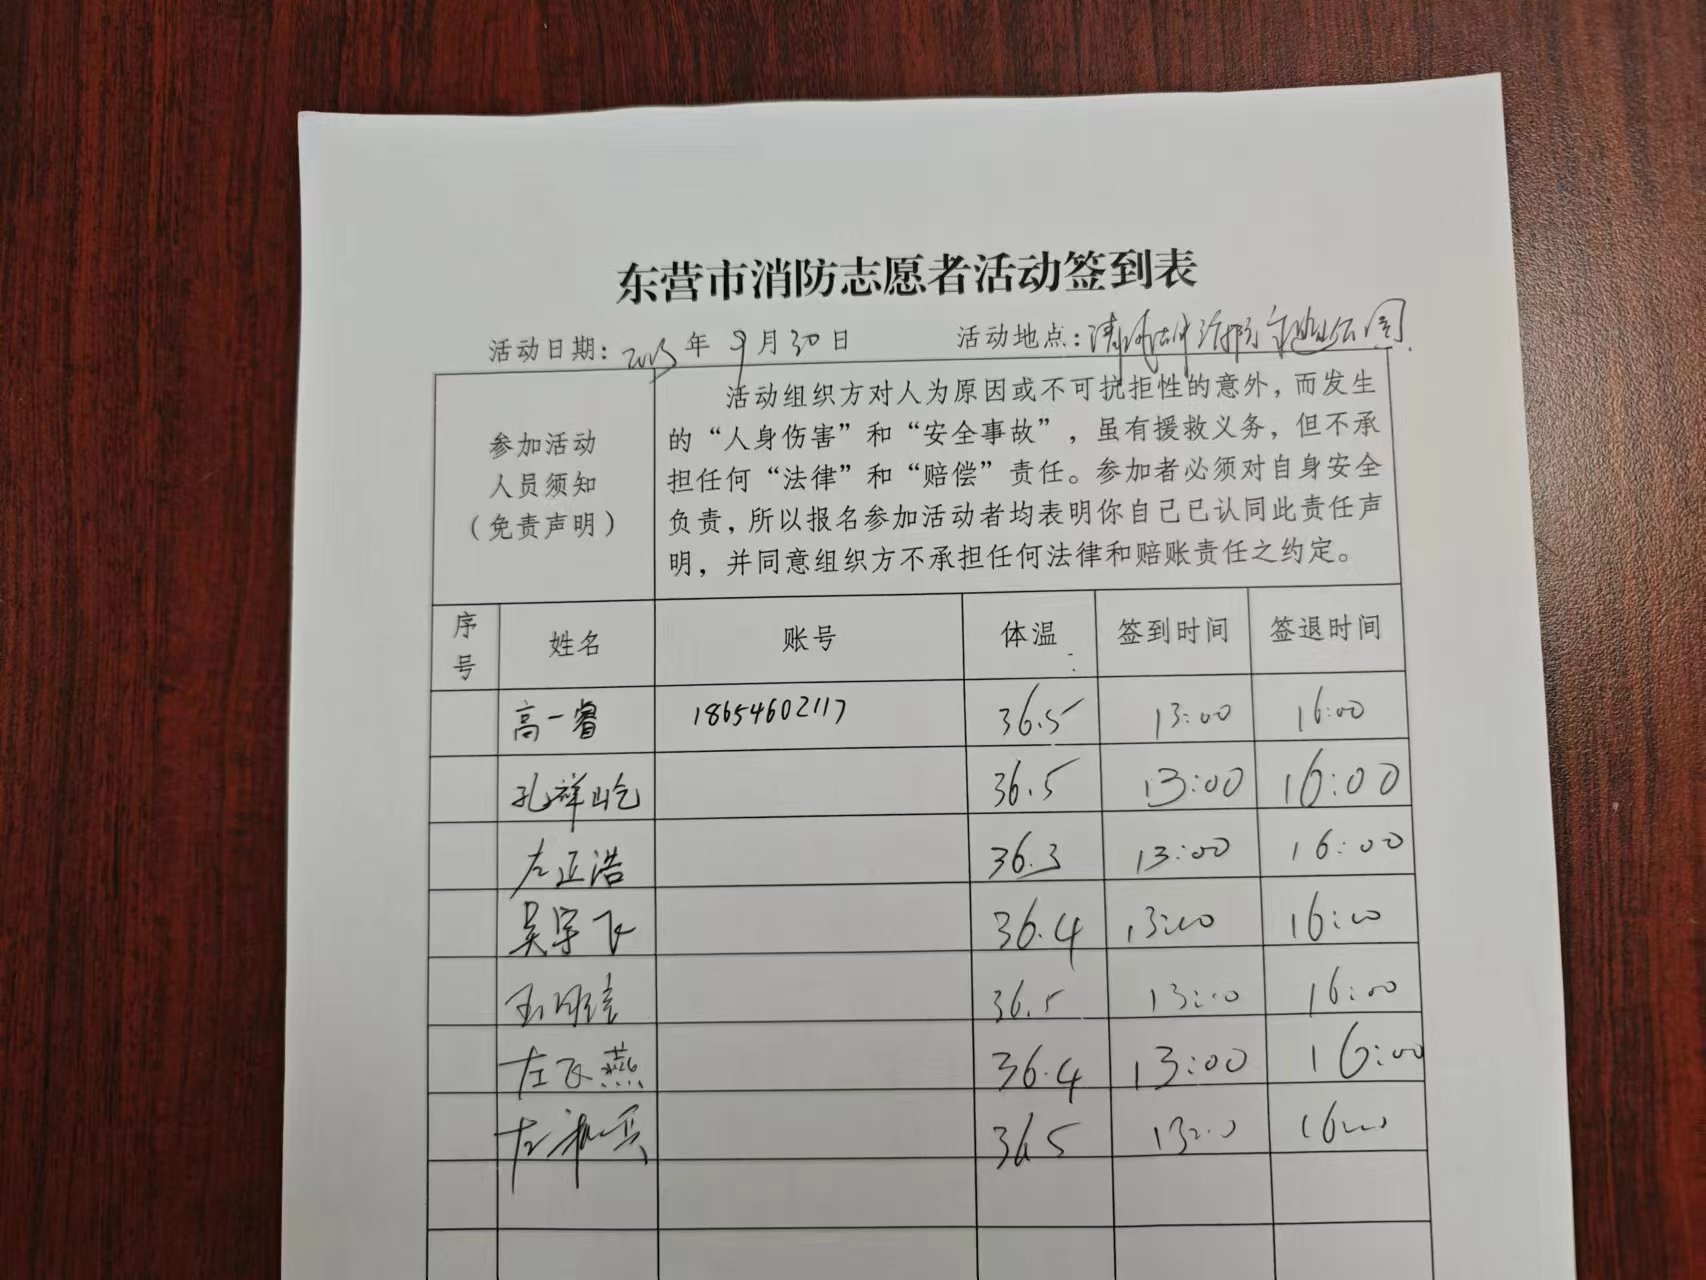 东营市消防志愿者活动签到表
活动日期: 2023 年 9 月 30 日 活动地点:
参加活动
人员须知
(免责声明)
活动组织方对人为原因或不可抗拒性的意外,而发生
的“人身伤害”和“安全事故”,虽有援救义务,但不承
担任何“法律”和“赔偿”责任。参加者必须对自身安全
负责,所以报名参加活动者均表明你自己已认同此责任声
明,并同意组织方不承担任何法律和赔账责任之约定。
序号 姓名 账号 体温 签到时间 签退时间
高一睿 18654602117 36.5 13:00 16:00
孔祥屹 36.5 13:00 16:00
左正浩 36.3 13:00 16:00
吴宇飞 36.4 13:00 16:00
36.5 13:00 16:00
左飞燕 36.4 13:00 16:00
左 36.5 13:00 16:00